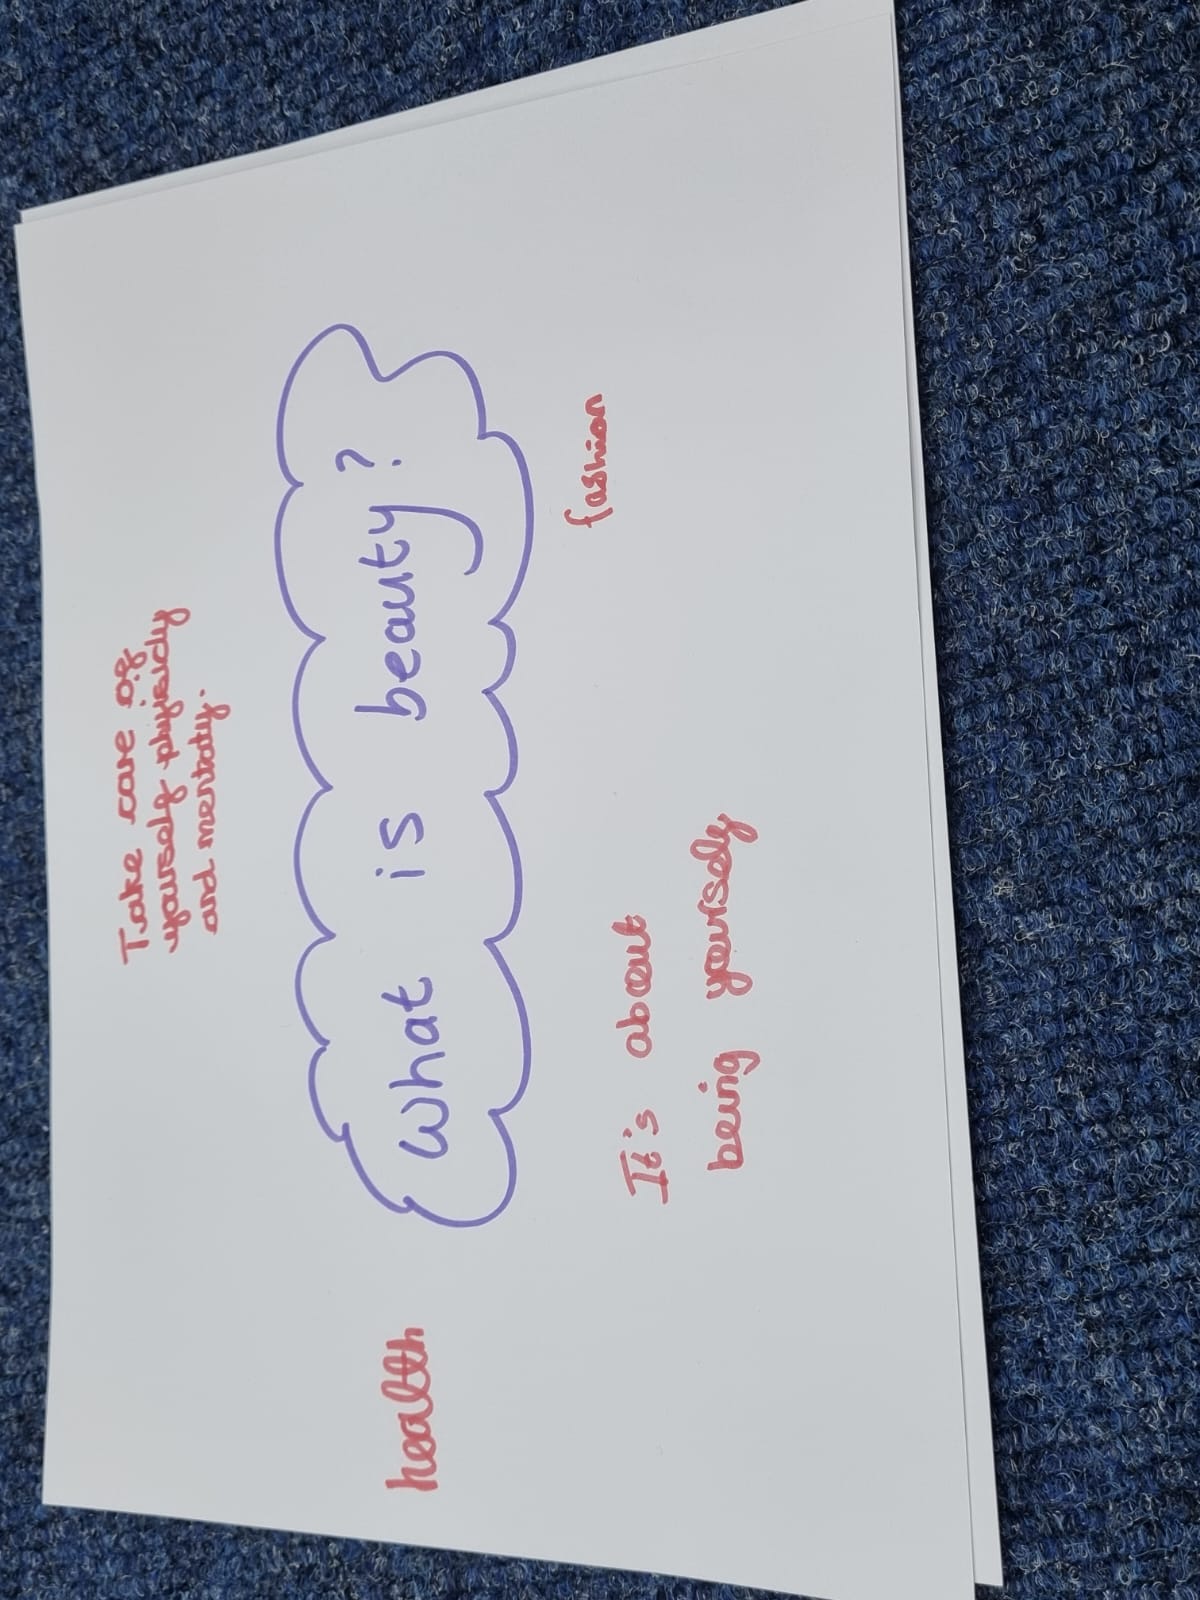 Take care of
yourself phyisicly
and mentaly.
What is beauty?
health
fashion
It's about
being yourself